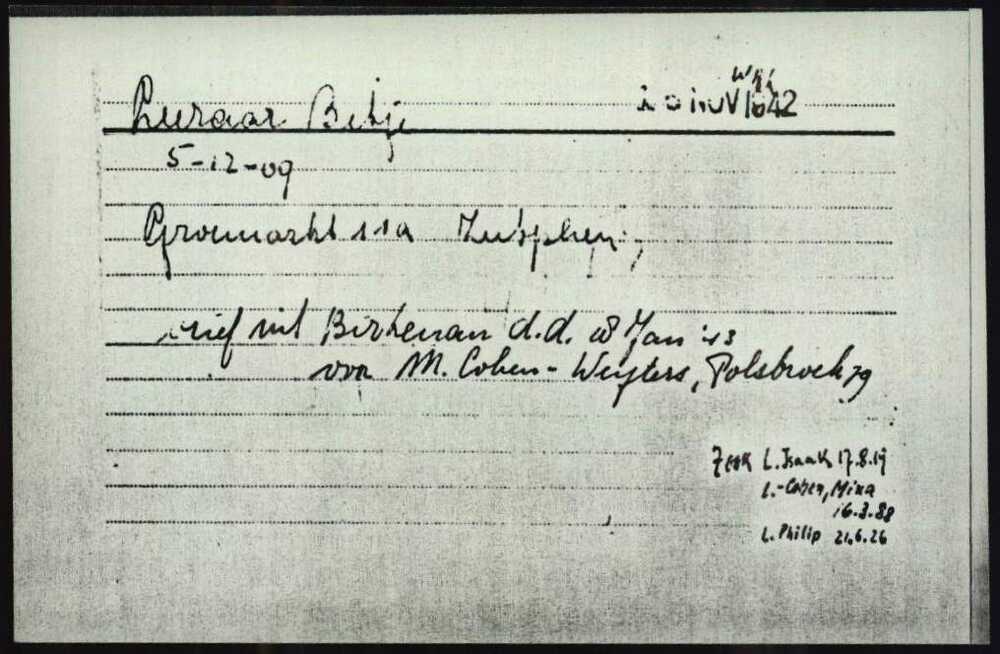 Leeraar Betje
20 NOV 1942
5-12-09
Groenmarkt 11a Zutphen
brief uit Birkenau d.d. Jan '43
M. Cohen - Weijters, Polsbroek 79
Zoek L. Isaak 17.8.19
L.-Cohen, Mina
16.3.88
L. Philip 21.6.26